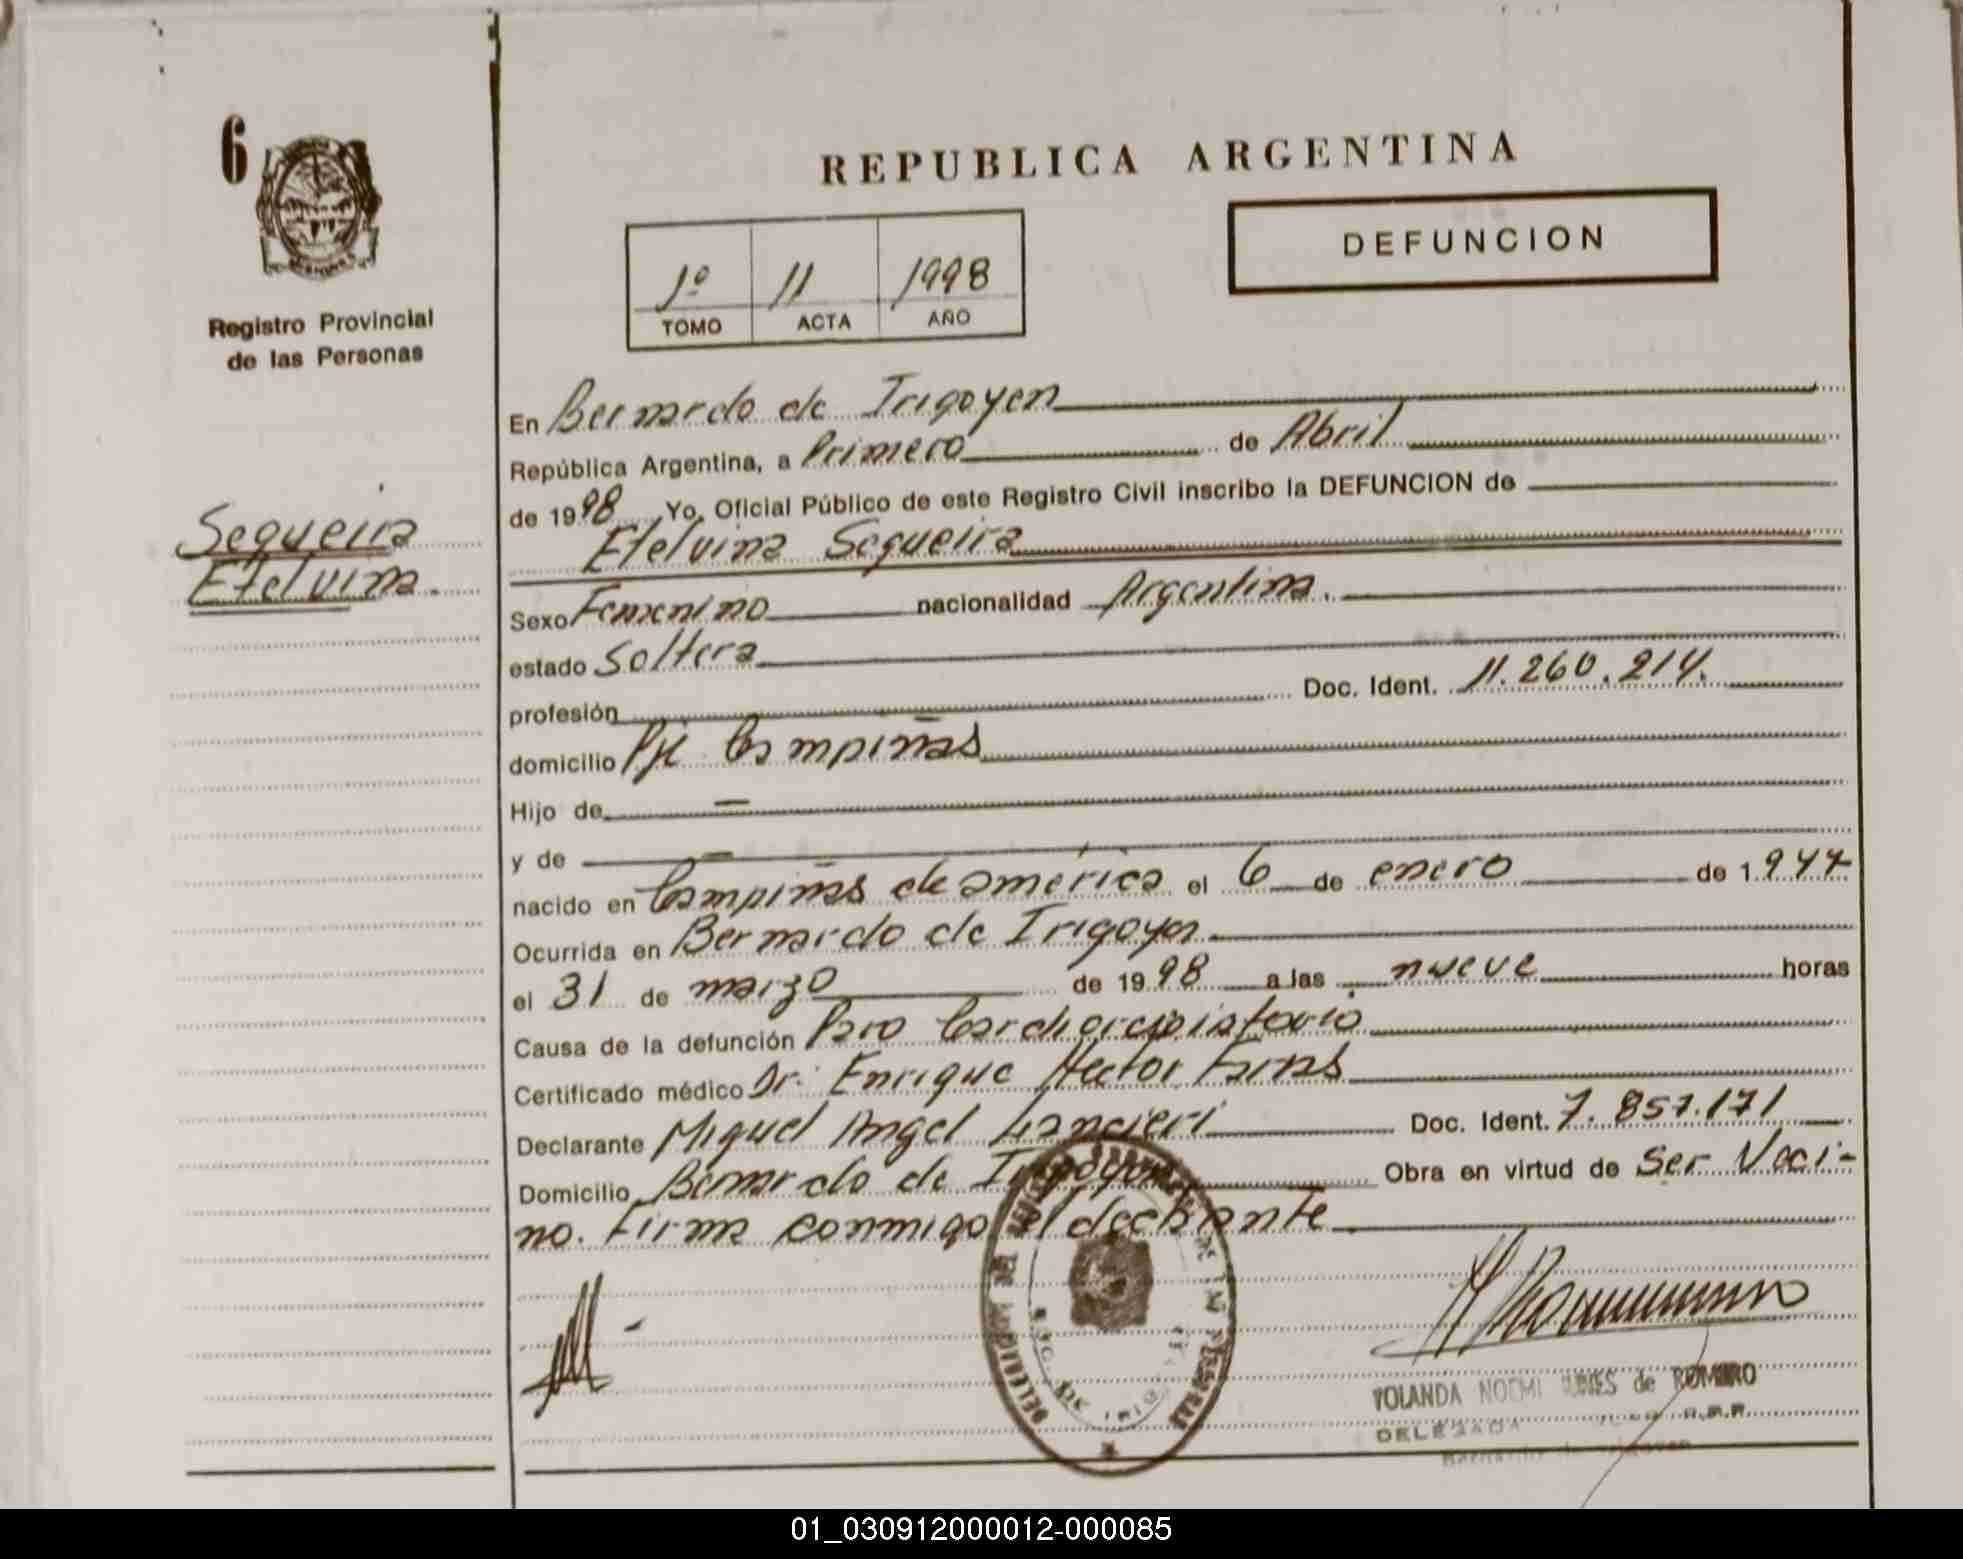 6
Registro Provincial
de las Personas
Sequeira
Etelvina.
REPUBLICA ARGENTINA
DEFUNCION
1º 11 1998
TOMO ACTA AÑO
En Bernardo de Irigoyen
República Argentina, a Primero de Abril
de 1998 Yo, Oficial Público de este Registro Civil inscribo la DEFUNCION de
Etelvina Sequeira
Sexo Femenino nacionalidad Argentina.
estado Soltera
profesión Doc. Ident. 11.260.214.
domicilio Pje Campiñas
Hijo de —
y de —
nacido en Campiñas de américa el 6 de enero de 1944
Ocurrida en Bernardo de Irigoyen
el 31 de marzo de 1998 a las nueve horas
Causa de la defunción Paro Cardiorespiratorio
Certificado médico Dr. Enrique Hector Farias
Declarante Miguel Angel Lancieri Doc. Ident. 7.857.171
Domicilio Bernardo de Irigoyen Obra en virtud de Ser Veci-
no. Firma conmigo el declarante.
YOLANDA NOEMI de ROMERO
DELEGADA
01_030912000012-000085